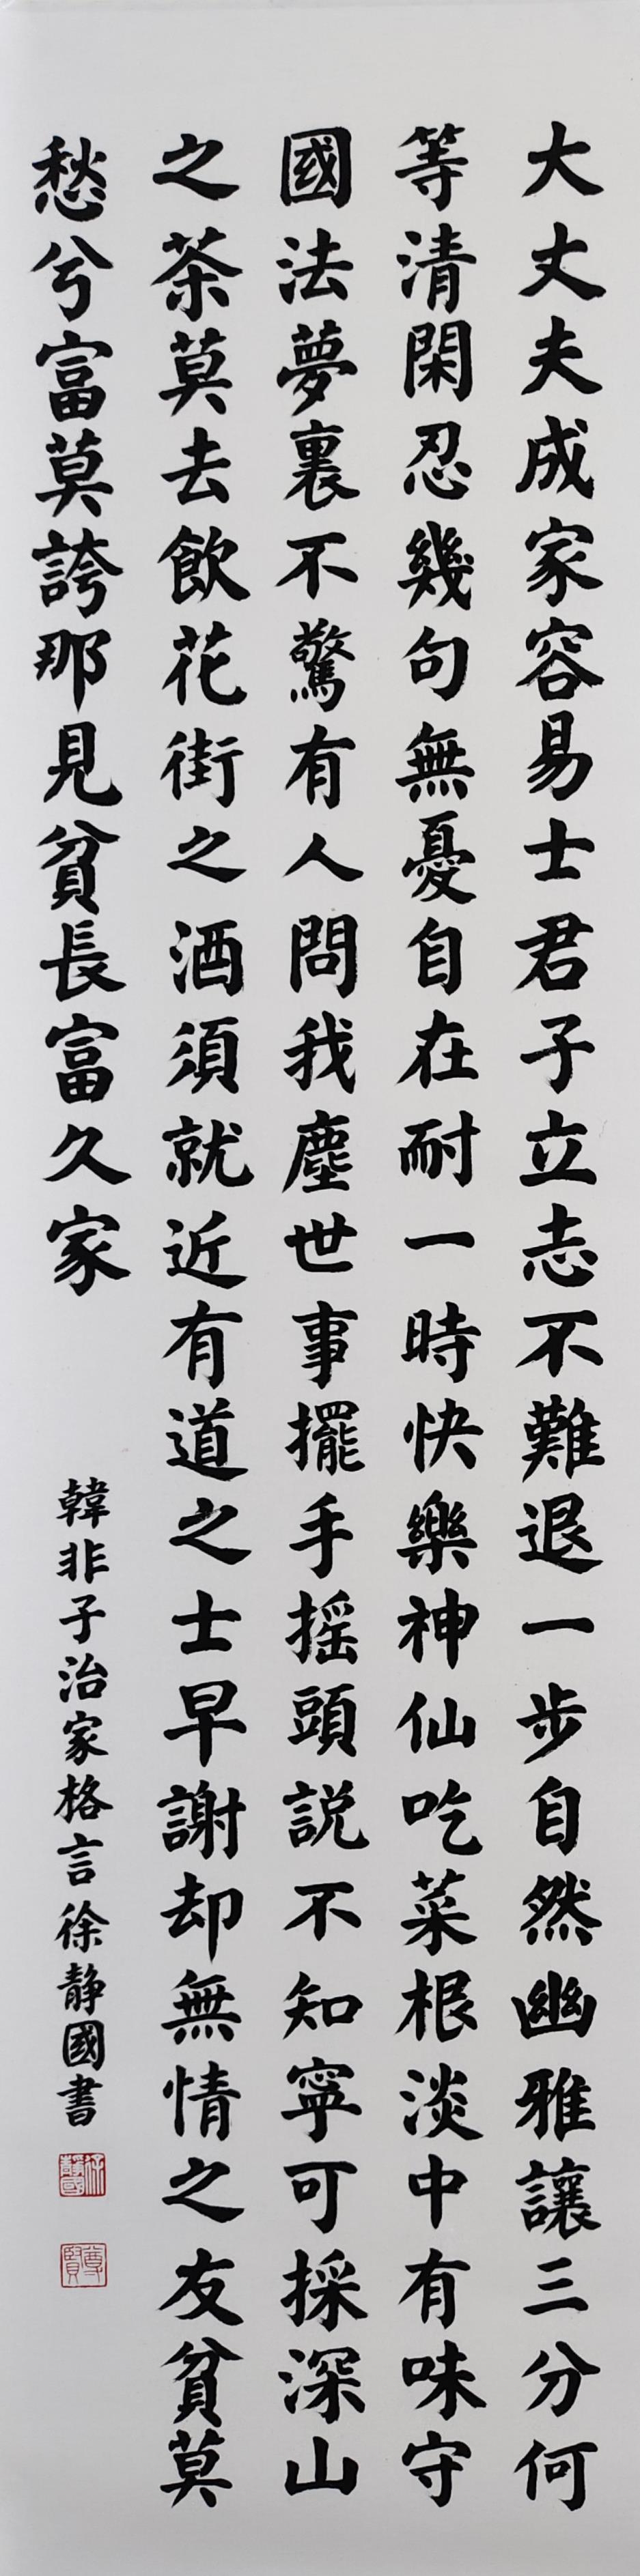 大丈夫成家容易士君子立志不難退一步自然幽雅讓三分何
等清閑忍幾句無憂自在耐一時快樂神仙吃菜根淡中有味守
國法夢裏不驚有人問我塵世事擺手摇頭説不知寧可採深山
之茶莫去飲花街之酒須就近有道之士早謝却無情之友貧莫
愁兮富莫誇那見貧長富久家
韓非子治家格言徐靜國書
徐靜國
尊賢